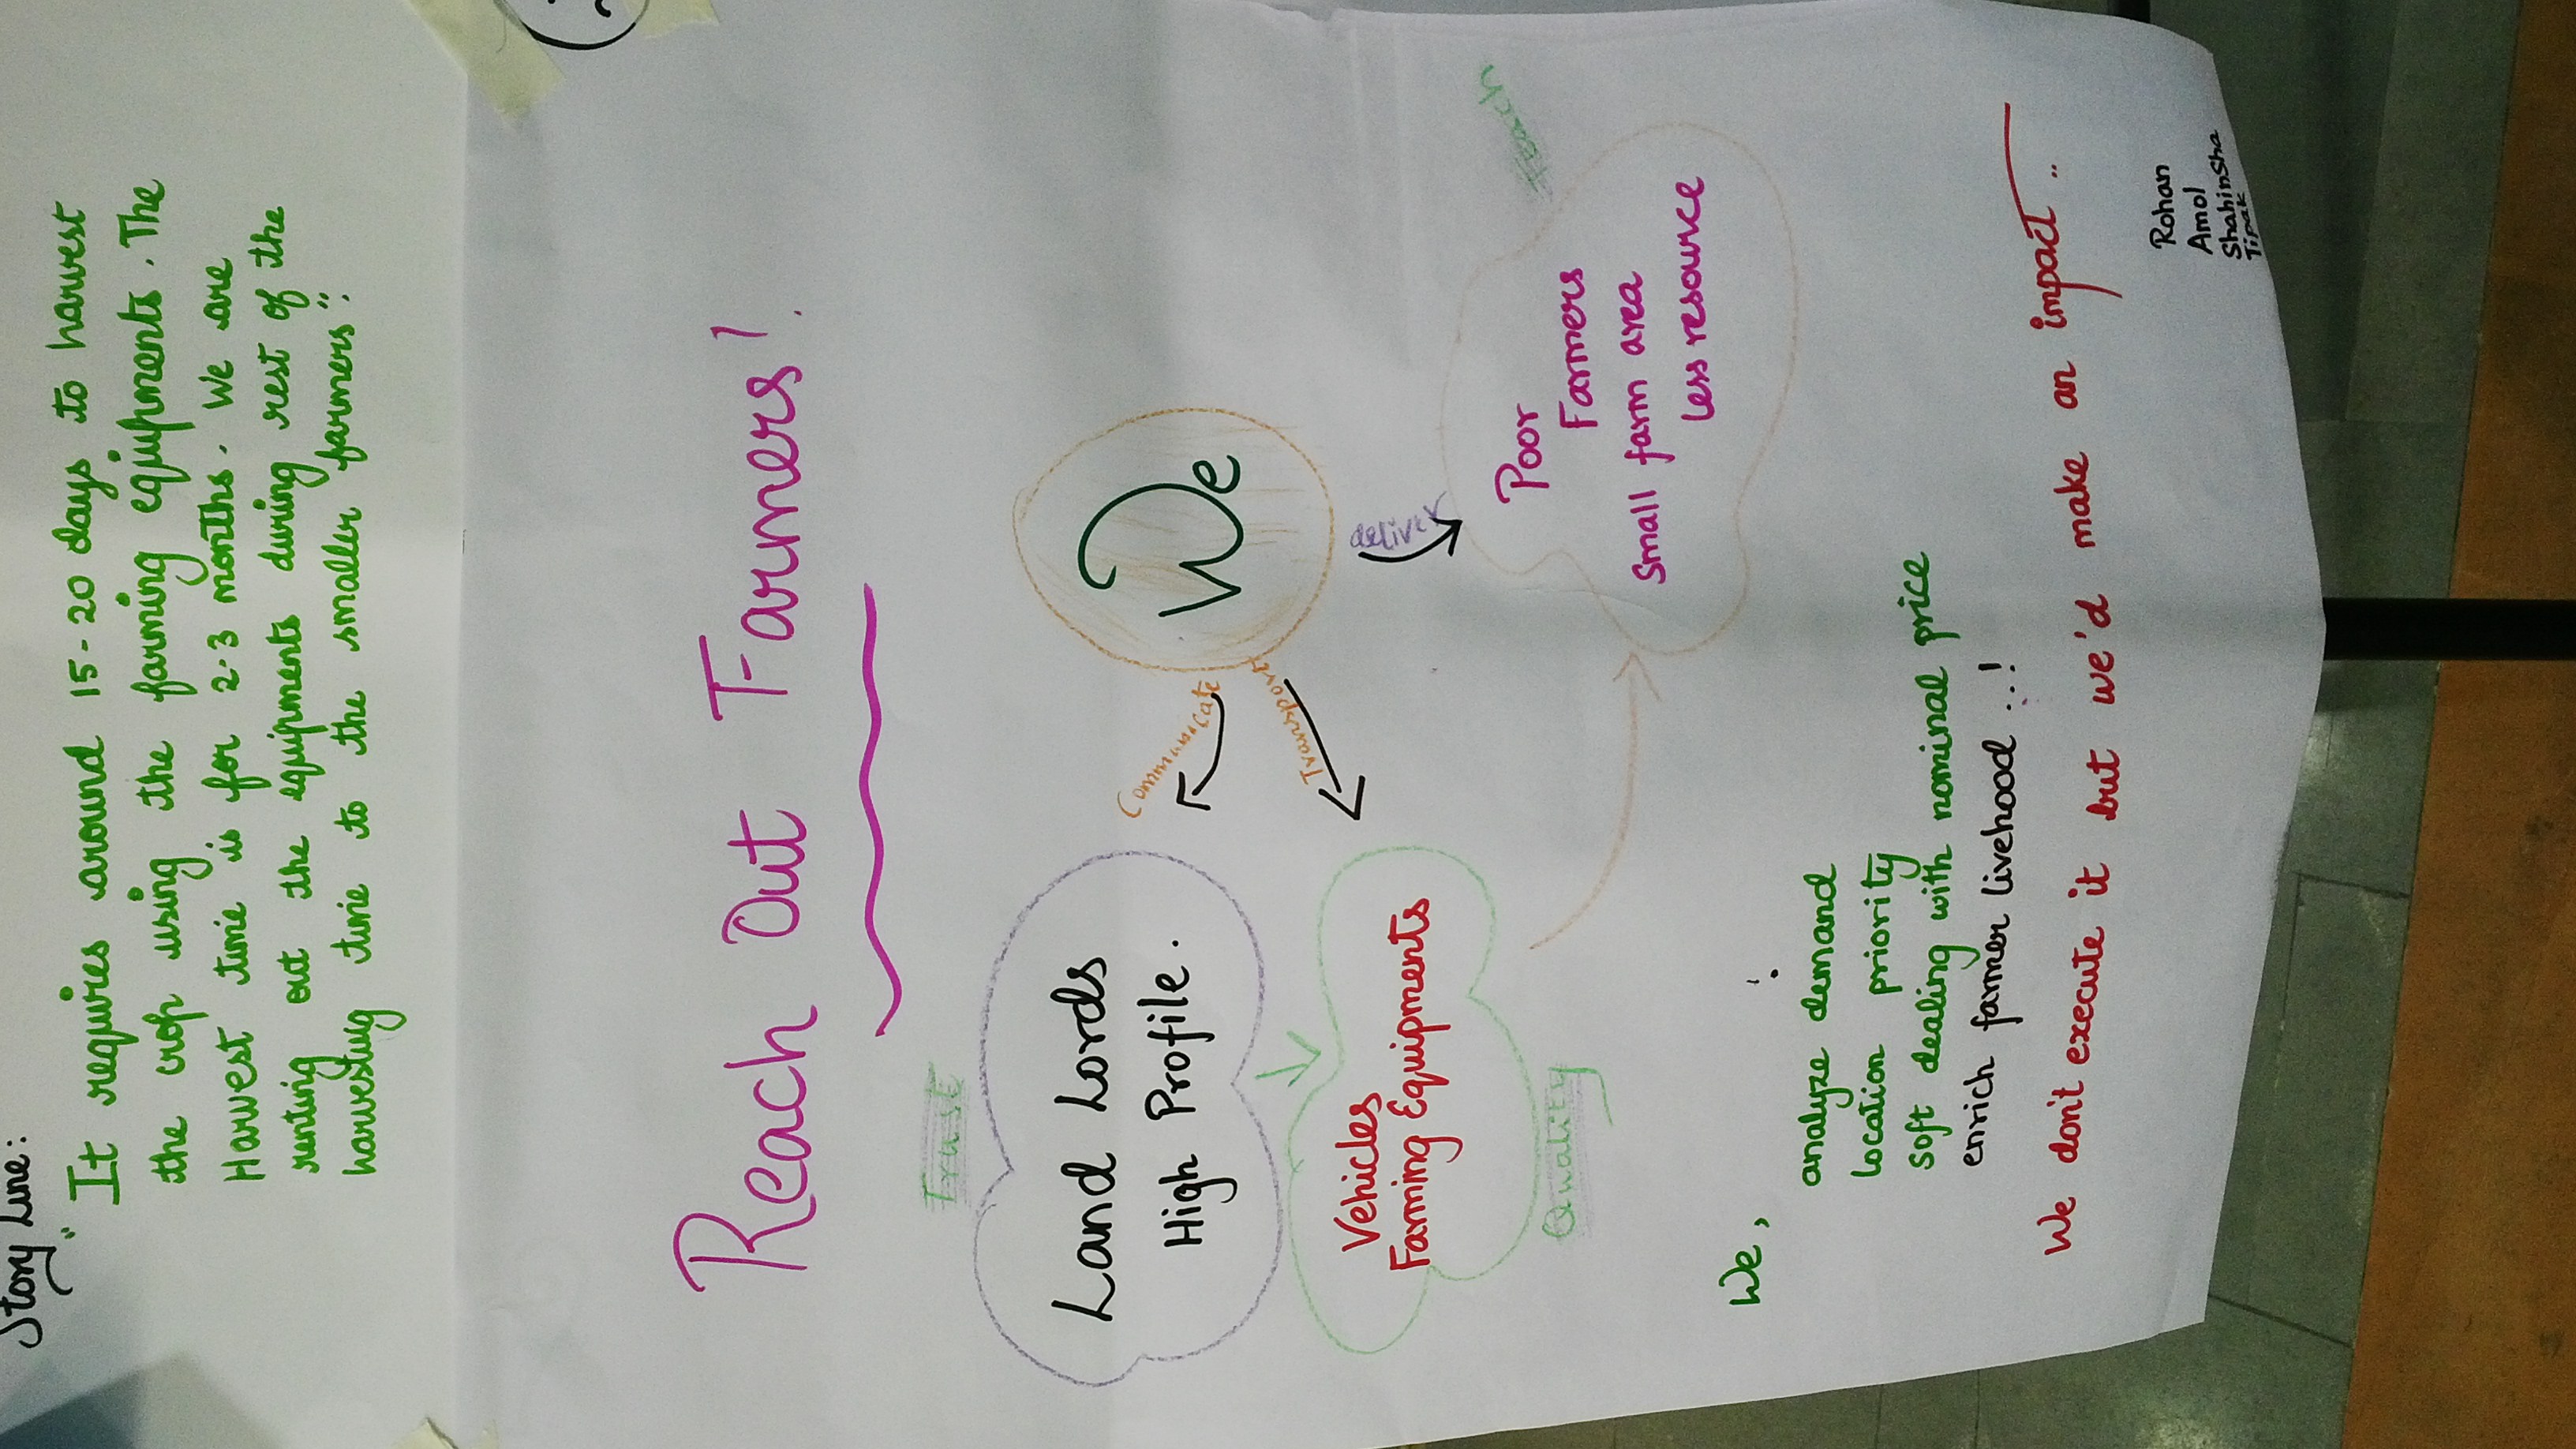 Story Line:
"It requires around 15-20 days to harvest
the crop using the farming equipments. The
Harvest time is for 2-3 months. We are
renting out the equipments during rest of the
harvesting time to the smaller farmers".
Reach Out Farmers!
Trust
Land Lords
High Profile.
We
Communicate
Transport
deliver
Vehicles
Farming Equipments
Quality
Poor
Farmers
Small farm area
less resource
Teach
We,
analyze demand
location priority
soft dealing with nominal price
enrich farmer livehood ..!
We don't execute it but we'd make an impact..
Rohan
Amol
ShahinSha
Tipak